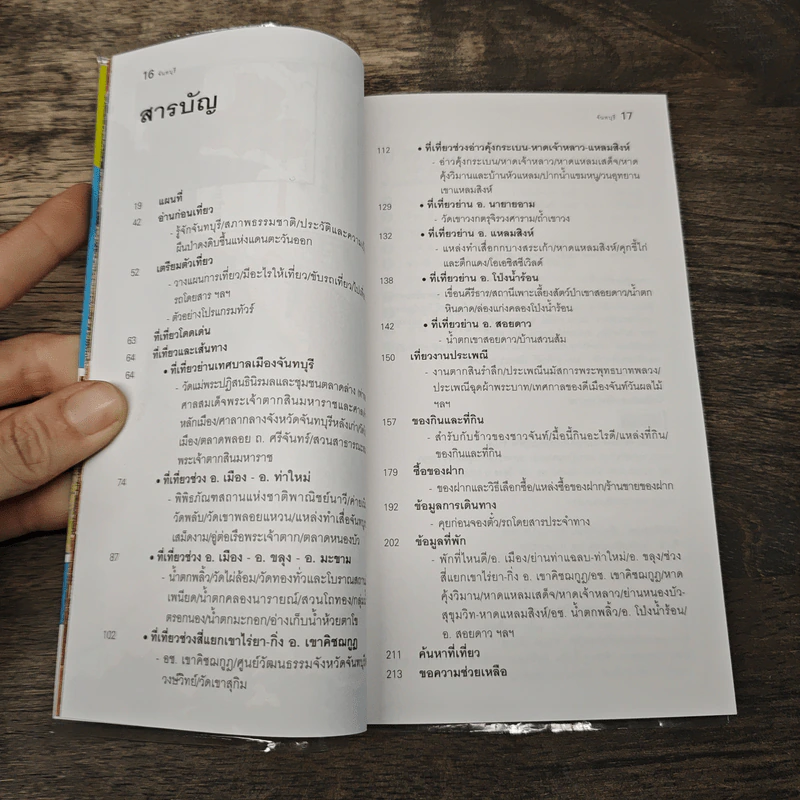 16 จันทบุรี
สารบัญ
19 แผนที่
42 อ่านก่อนเที่ยว
- รู้จักจันทบุรี/สภาพธรรมชาติ/ประวัติและความ
ผืนป่าดงดิบชื้นแห่งแดนตะวันออก
52 เตรียมตัวเที่ยว
- วางแผนการเที่ยว/มีอะไรให้เที่ยว/ขับรถเที่ยว
รถโดยสาร ฯลฯ
- ตัวอย่างโปรแกรมทัวร์
63 ที่เที่ยวโดดเด่น
64 ที่เที่ยวและเส้นทาง
64 • ที่เที่ยวย่านเทศบาลเมืองจันทบุรี
- วัดแม่พระปฏิสนธินิรมลและชุมชนตลาดล่าง
ศาลสมเด็จพระเจ้าตากสินมหาราชและศาล
หลักเมือง/ศาลากลางจังหวัดจันทบุรีหลังเก่า
เมือง/ตลาดพลอย ถ. ศรีจันทร์/สวนสาธารณะ
พระเจ้าตากสินมหาราช
74 • ที่เที่ยวช่วง อ. เมือง - อ. ท่าใหม่
- พิพิธภัณฑสถานแห่งชาติพาณิชย์นาวี
วัดพลับ/วัดเขาพลอยแหวน/แหล่งทำเสื่อจันทบูร
เสม็ดงาม/อู่ต่อเรือพระเจ้าตาก/ตลาดหนองบัว
87 • ที่เที่ยวช่วง อ. เมือง - อ. ขลุง - อ. มะขาม
- น้ำตกพลิ้ว/วัดไผ่ล้อม/วัดทองทั่วและโบราณสถาน
เพนียด/น้ำตกคลองนารายณ์/สวนโถทอง
ตรอกนอง/น้ำตกมะกอก/อ่างเก็บน้ำห้วยตาโบ
102 • ที่เที่ยวช่วงสี่แยกเขาไร่ยา-กิ่ง อ. เขาคิชฌกูฏ
- อช. เขาคิชฌกูฏ/ศูนย์วัฒนธรรมจังหวัดจันทบุรี
วงษ์วิทย์/วัดเขาสุกิม
จันทบุรี 17
112 • ที่เที่ยวช่วงอ่าวคุ้งกระเบน-หาดเจ้าหลาว-แหลมสิงห์
- อ่าวคุ้งกระเบน/หาดเจ้าหลาว/หาดแหลมเสด็จ/หาด
คุ้งวิมานและบ้านหัวแหลม/ปากน้ำแขมหนู/วนอุทยาน
เขาแหลมสิงห์
129 • ที่เที่ยวย่าน อ. นายายอาม
- วัดเขาวงกตรุจิรวงศาราม/ถ้ำเขาวง
132 • ที่เที่ยวย่าน อ. แหลมสิงห์
- แหล่งทำเสื่อกกบางสระเก้า/หาดแหลมสิงห์/คุกขี้ไก่
และตึกแดง/โอเอซิสซีเวิลด์
138 • ที่เที่ยวย่าน อ. โป่งน้ำร้อน
- เขื่อนคีรีธาร/สถานีเพาะเลี้ยงสัตว์ป่าเขาสอยดาว/น้ำตก
หินดาด/ล่องแก่งคลองโป่งน้ำร้อน
142 • ที่เที่ยวย่าน อ. สอยดาว
- น้ำตกเขาสอยดาว/บ้านสวนส้ม
150 เที่ยวงานประเพณี
- งานตากสินรำลึก/ประเพณีนมัสการพระพุทธบาทพลวง/
ประเพณีฉุดผ้าพระบาท/เทศกาลของดีเมืองจันท์วันผลไม้
ฯลฯ
157 ของกินและที่กิน
- สำรับกับข้าวของชาวจันท์/มื้อนี้กินอะไรดี/แหล่งที่กิน/
ของกินและที่กิน
179 ซื้อของฝาก
- ของฝากและวิธีเลือกซื้อ/แหล่งซื้อของฝาก/ร้านขายของฝาก
192 ข้อมูลการเดินทาง
- คุยก่อนจองตั๋ว/รถโดยสารประจำทาง
202 ข้อมูลที่พัก
- พักที่ไหนดี/อ. เมือง/ย่านท่าแฉลบ-ท่าใหม่/อ. ขลุง/ช่วง
สี่แยกเขาไร่ยา-กิ่ง อ. เขาคิชฌกูฏ/อช. เขาคิชฌกูฏ/หาด
คุ้งวิมาน/หาดแหลมเสด็จ/หาดเจ้าหลาว/ย่านหนองบัว-
สุขุมวิท-หาดแหลมสิงห์/อช. น้ำตกพลิ้ว/อ. โป่งน้ำร้อน/
อ. สอยดาว ฯลฯ
211 ค้นหาที่เที่ยว
213 ขอความช่วยเหลือ